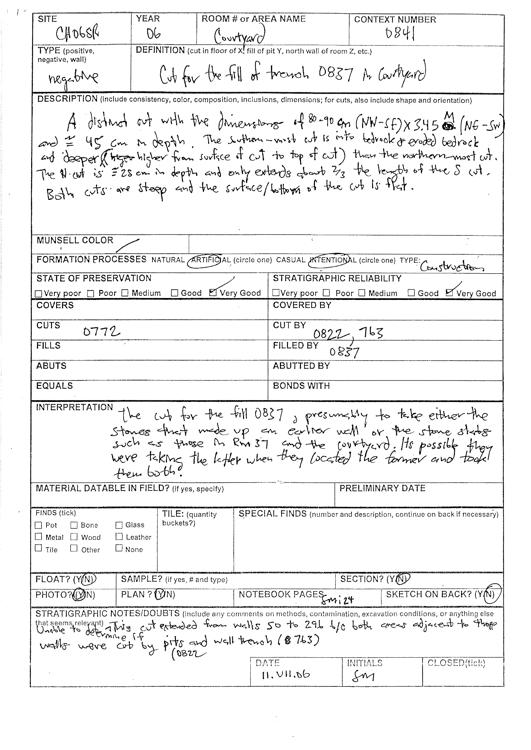 SITE YEAR ROOM # or AREA NAME CONTEXT NUMBER
CH06SR 06 Courtyard 0841
TYPE (positive, negative, wall) DEFINITION (cut in floor of X, fill of pit Y, north wall of room Z, etc.)
negative Cut for the fill of trench 0837 in Courtyard
DESCRIPTION (include consistency, color, composition, inclusions, dimensions; for cuts, also include shape and orientation)
A distinct cut with the dimensions of 80-90 cm (NW-SE) X 3.45 M (NE-SW)
and ≅ 45 cm in depth. The southern-most cut is into bedrock & eroded bedrock
and deeper (higher from surface of cut to top of cut) than the northern-most cut.
The N cut is ≅ 28 cm in depth and only extends about 2/3 the length of the S cut.
Both cuts are steep and the surface/bottom of the cut is flat.
MUNSELL COLOR
FORMATION PROCESSES NATURAL ARTIFICIAL (circle one) CASUAL INTENTIONAL (circle one) TYPE: Construction
STATE OF PRESERVATION STRATIGRAPHIC RELIABILITY
Very poor Poor Medium Good Very Good Very poor Poor Medium Good Very Good
COVERS COVERED BY
CUTS 0772 CUT BY 0822, 763
FILLS FILLED BY 0837
ABUTS ABUTTED BY
EQUALS BONDS WITH
INTERPRETATION The cut for the fill 0837, presumably to take either the
stones that made up an earlier wall or the stone slabs
such as those in Rm 37 and the courtyard. Its possible they
were taking the latter when they located the former and took
them both?
MATERIAL DATABLE IN FIELD? (if yes, specify) PRELIMINARY DATE
FINDS (tick) TILE: (quantity buckets?) SPECIAL FINDS (number and description, continue on back if necessary)
Pot Bone Glass
Metal Wood Leather
Tile Other None
FLOAT? (Y/N) SAMPLE? (if yes, # and type) SECTION? (Y/N)
PHOTO? (Y/N) PLAN? (Y/N) NOTEBOOK PAGES SM124 SKETCH ON BACK? (Y/N)
STRATIGRAPHIC NOTES/DOUBTS (include any comments on methods, contamination, excavation conditions, or anything else that seems relevant)
Unable to determine if this cut extended from walls 50 to 296 b/c both areas adjacent to those
walls were cut by pits and wall trench (763)
(0822
DATE INITIALS CLOSED(tick)
11.VII.06 SM